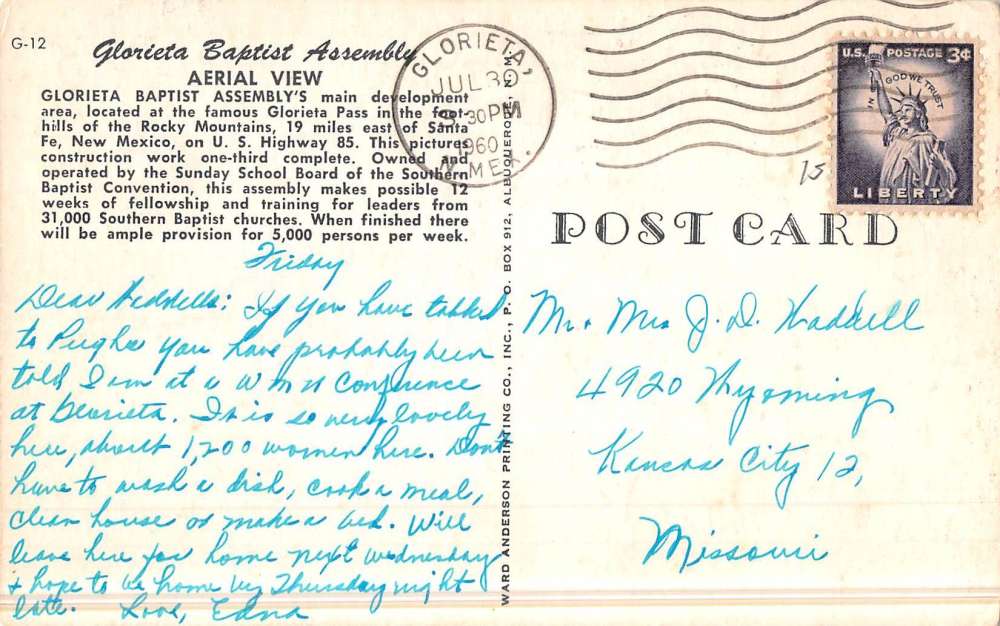 G-12
Glorieta Baptist Assembly
AERIAL VIEW
GLORIETA BAPTIST ASSEMBLY'S main development
area, located at the famous Glorieta Pass in the foot-
hills of the Rocky Mountains, 19 miles east of Santa
Fe, New Mexico, on U. S. Highway 85. This pictures
construction work one-third complete. Owned and
operated by the Sunday School Board of the Southern
Baptist Convention, this assembly makes possible 12
weeks of fellowship and training for leaders from
31,000 Southern Baptist churches. When finished there
will be ample provision for 5,000 persons per week.
Friday
Dear Waddells: If you have talked
to you have probably been
told I am at a W M U Conference
at Glorieta. It is so very lovely
here, about 1,200 women here. Don't
have to wash a dish, cook a meal,
clean house or make a bed. Will
leave here for home next Wednesday
+ hope to be home by Thursday night
late. Love, Edna
WARD ANDERSON PRINTING CO., INC., P. O. BOX 912, ALBUQUERQUE, N. M.
GLORIETA,
JUL 30
30 PM
1960
N. MEX.
U.S. POSTAGE 3¢
IN GOD WE TRUST
LIBERTY
15
POST CARD
Mr. Mrs J. D. Waddell
4920 Wyoming
Kansas City 12,
Missouri